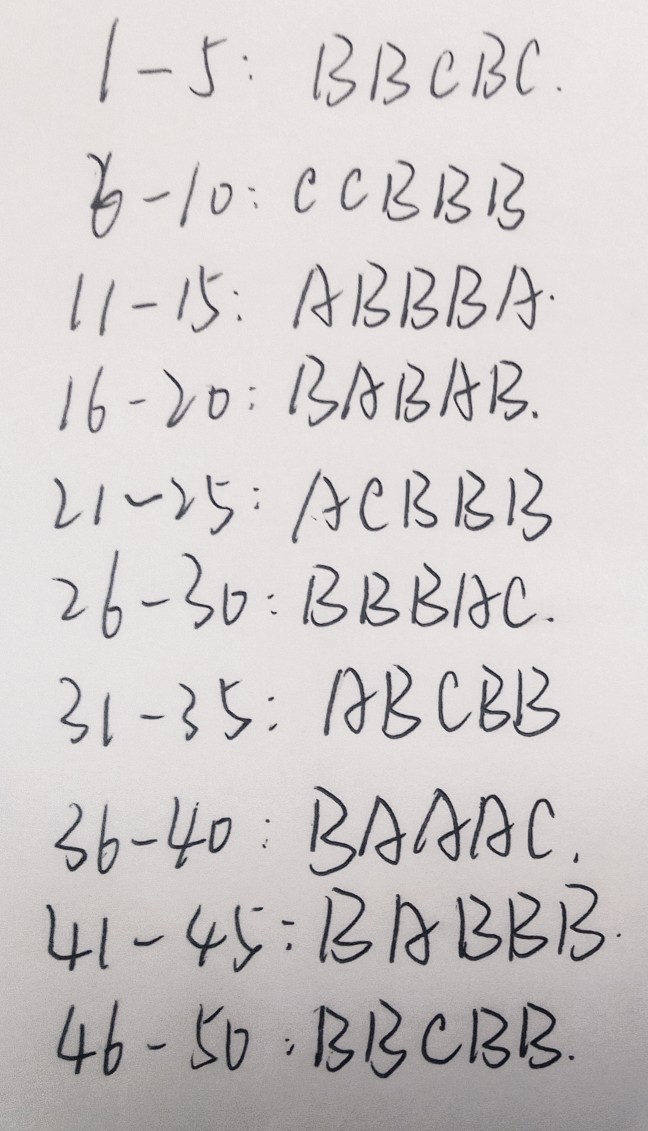 1-5: BBCBC.
6-10: CCBBB
11-15: ABBBA.
16-20: BABAB.
21-25: ACBBB
26-30: BBBAC.
31-35: ABCBB
36-40: BAAAC.
41-45: BABBB.
46-50: BBCBB.